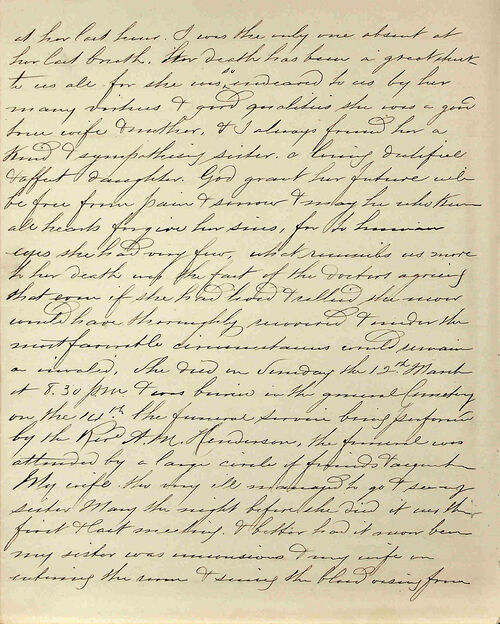 at her last hour. I was the only one absent at
her last breath. Her death has been a great shock
to us all for she was so endeared to us by her
many virtues & good qualities she was a good
true wife & mother, & I always found her a
kind & sympathising sister. a loving dutiful
& affect daughter. God grant her future will
be free from pain & sorrow & may he who knows
all hearts forgive her sins, for to human
eyes she had very few, what reconciles us more
to her death was the fact of the doctors agreeing
that even if she had lived & rallied, she never
would have thoroughly recovered & under the
most favorable circumstances would remain
a invalid. She died on Sunday the 12th March
at 8.30 pm & was buried in the general Cemetery
on the 14th the funeral service being performed
by the Revd A. M. Henderson, the funeral was
attended by a large circle of friends & acquent
My wife tho very ill managed to go & see my
sister Mary the night before she died it was their
first & last meeting. & better had it never been
my sister was unconscious & my wife on
entering the room & seeing the blood oozing from